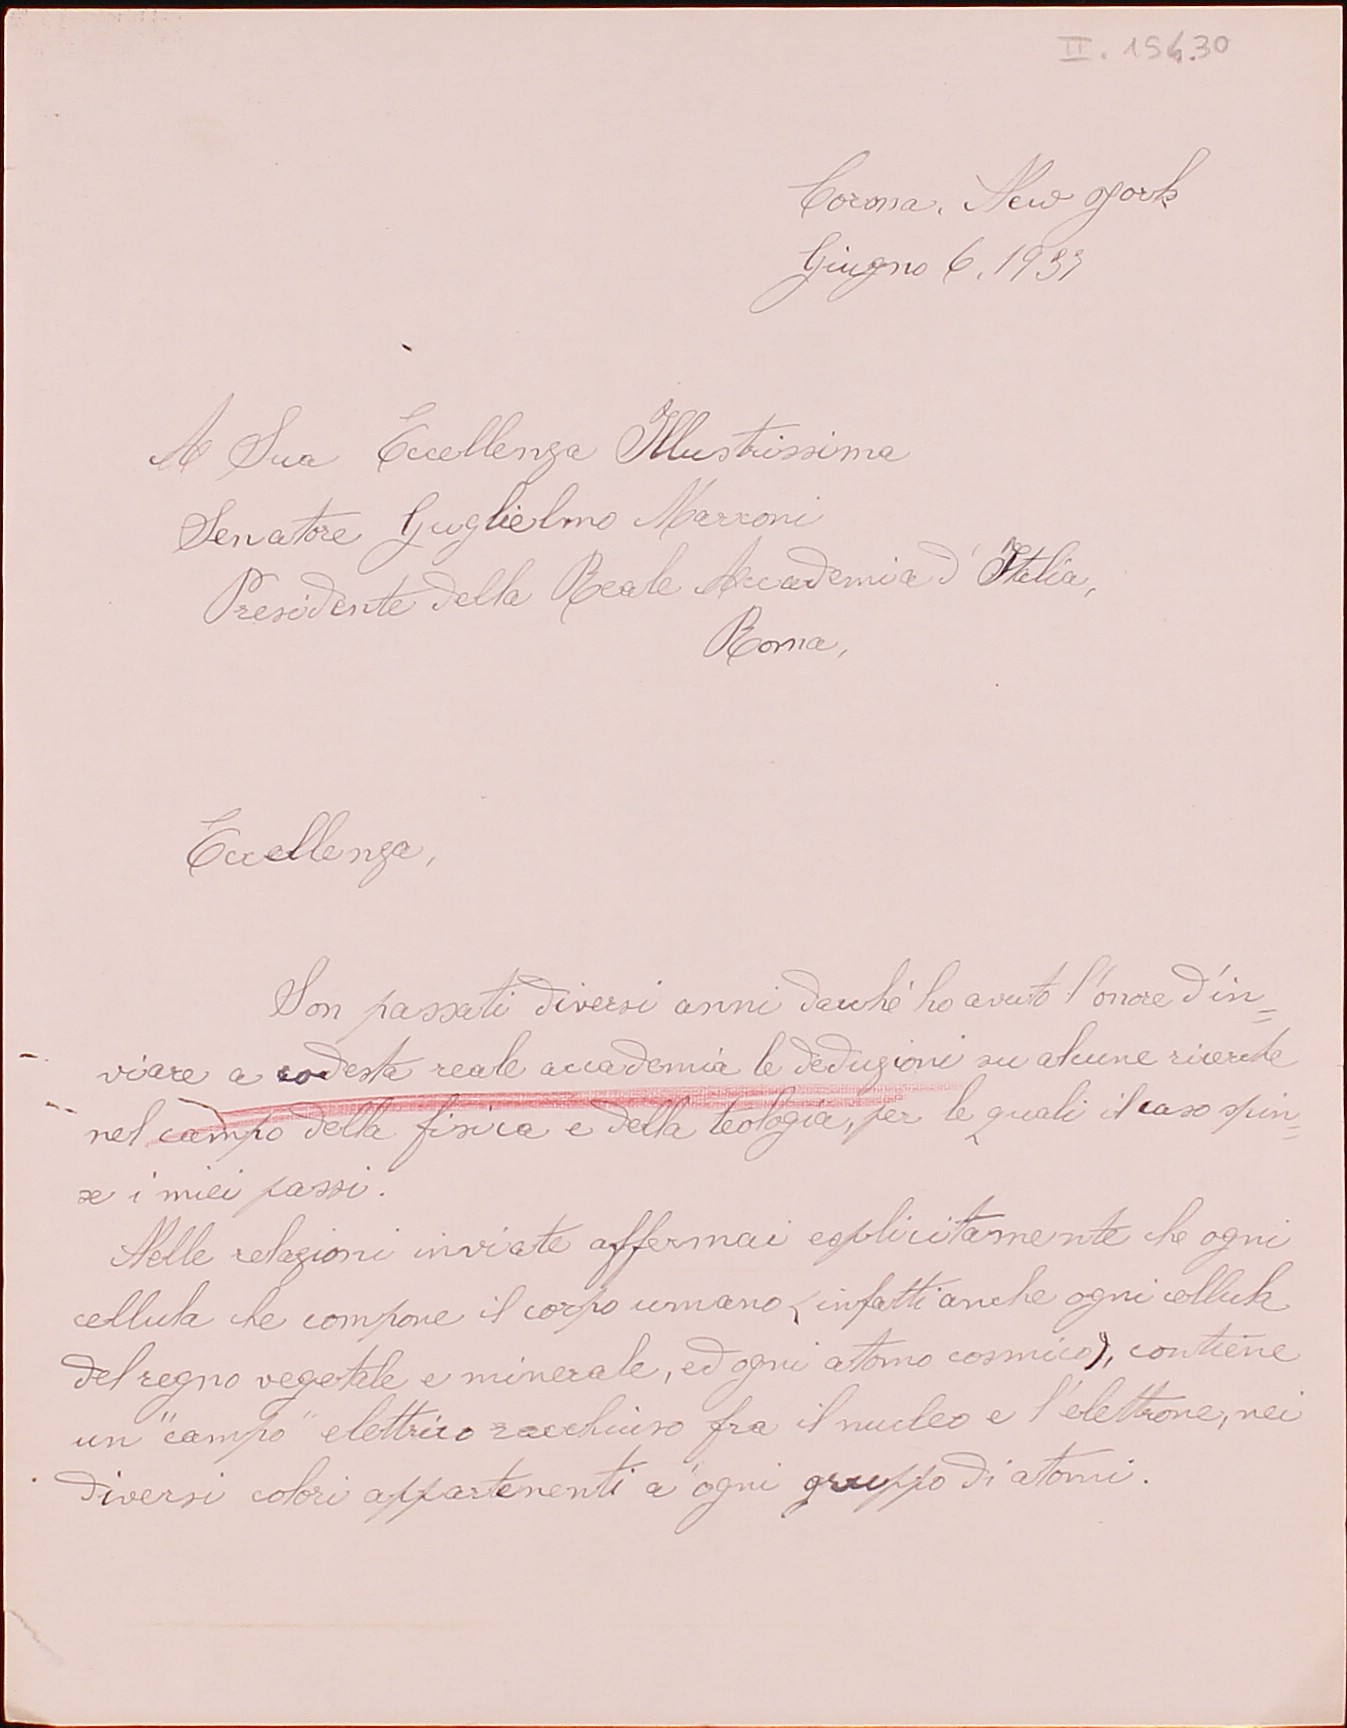 II. 154.30
Corona, New York
Giugno 6, 1933
A Sua Eccellenza Illustrissima
Senatore Guglielmo Marconi
Presidente della Reale Accademia d'Italia,
Roma,
Eccellenza,
Son passati diversi anni dacché ho avuto l'onore d'in=
viare a codesta reale accademia le deduzioni su alcune ricerche
nel campo della fisica e della teologia, per le quali il caso spin=
se i miei passi.
Nelle relazioni inviate affermai esplicitamente che ogni
cellula che compone il corpo umano (infatti anche ogni cellula
del regno vegetale e minerale, ed ogni atomo cosmico), contiene
un "campo" elettrico racchiuso fra il nucleo e l'elettrone, nei
diversi colori appartenenti a ogni gruppo di atomi.